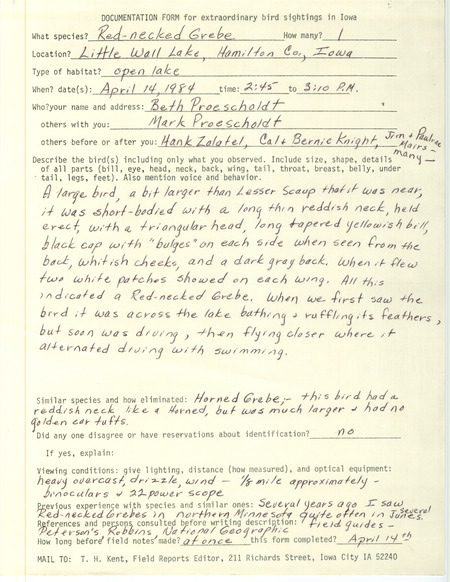 DOCUMENTATION FORM for extraordinary bird sightings in Iowa
What species? Red-necked Grebe How many? 1
Location? Little Wall Lake, Hamilton Co., Iowa
Type of habitat? open lake
When? date(s): April 14, 1984 time: 2:45 to 3:10 P.M.
Who? your name and address: Beth Proescholdt
others with you: Mark Proescholdt
others before or after you: Hank Zaletel, Cal & Bernie Knight, Jim & Pauline
Mairs -
many -
Describe the bird(s) including only what you observed. Include size, shape, details
of all parts (bill, eye, head, neck, back, wing, tail, throat, breast, belly, under
tail, legs, feet). Also mention voice and behavior.
A large bird, a bit larger than Lesser Scaup that it was near,
it was short-bodied with a long thin reddish neck, held
erect, with a triangular head, long tapered yellowish bill,
black cap with "bulges" on each side when seen from the
back, whitish cheeks, and a dark gray back. When it flew
two white patches showed on each wing. All this
indicated a Red-necked Grebe. When we first saw the
bird it was across the lake bathing & ruffling its feathers,
but soon was diving, then flying closer where it
alternated diving with swimming.
Similar species and how eliminated: Horned Grebe; - this bird had a
reddish neck like a Horned, but was much larger & had no
golden ear tufts.
Did any one disagree or have reservations about identification? no
If yes, explain:
Viewing conditions: give lighting, distance (how measured), and optical equipment:
heavy overcast, drizzle, wind - 1/8 mile approximately -
binoculars & 22 power scope
Previous experience with species and similar ones: Several years ago I saw
Red-necked Grebes in northern Minnesota quite often in several
Junes.
References and persons consulted before writing description: field guides -
Peterson's Robbins, National Geographic
How long before field notes made? at once this form completed? April 14th
MAIL TO: T. H. Kent, Field Reports Editor, 211 Richards Street, Iowa City IA 52240